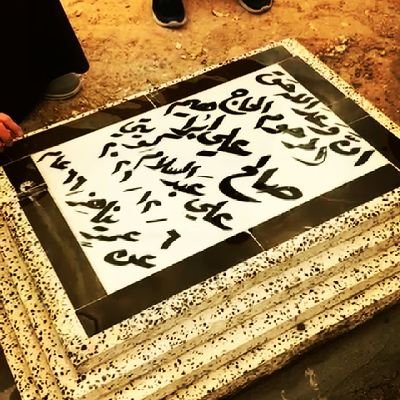 انّ وعد الله حق
المرحوم الحاج
صالح علي
علي عبد السلام
٦ / ١٢ / ٢٠٢٠
عن عمر يناهز ٦٦ عام